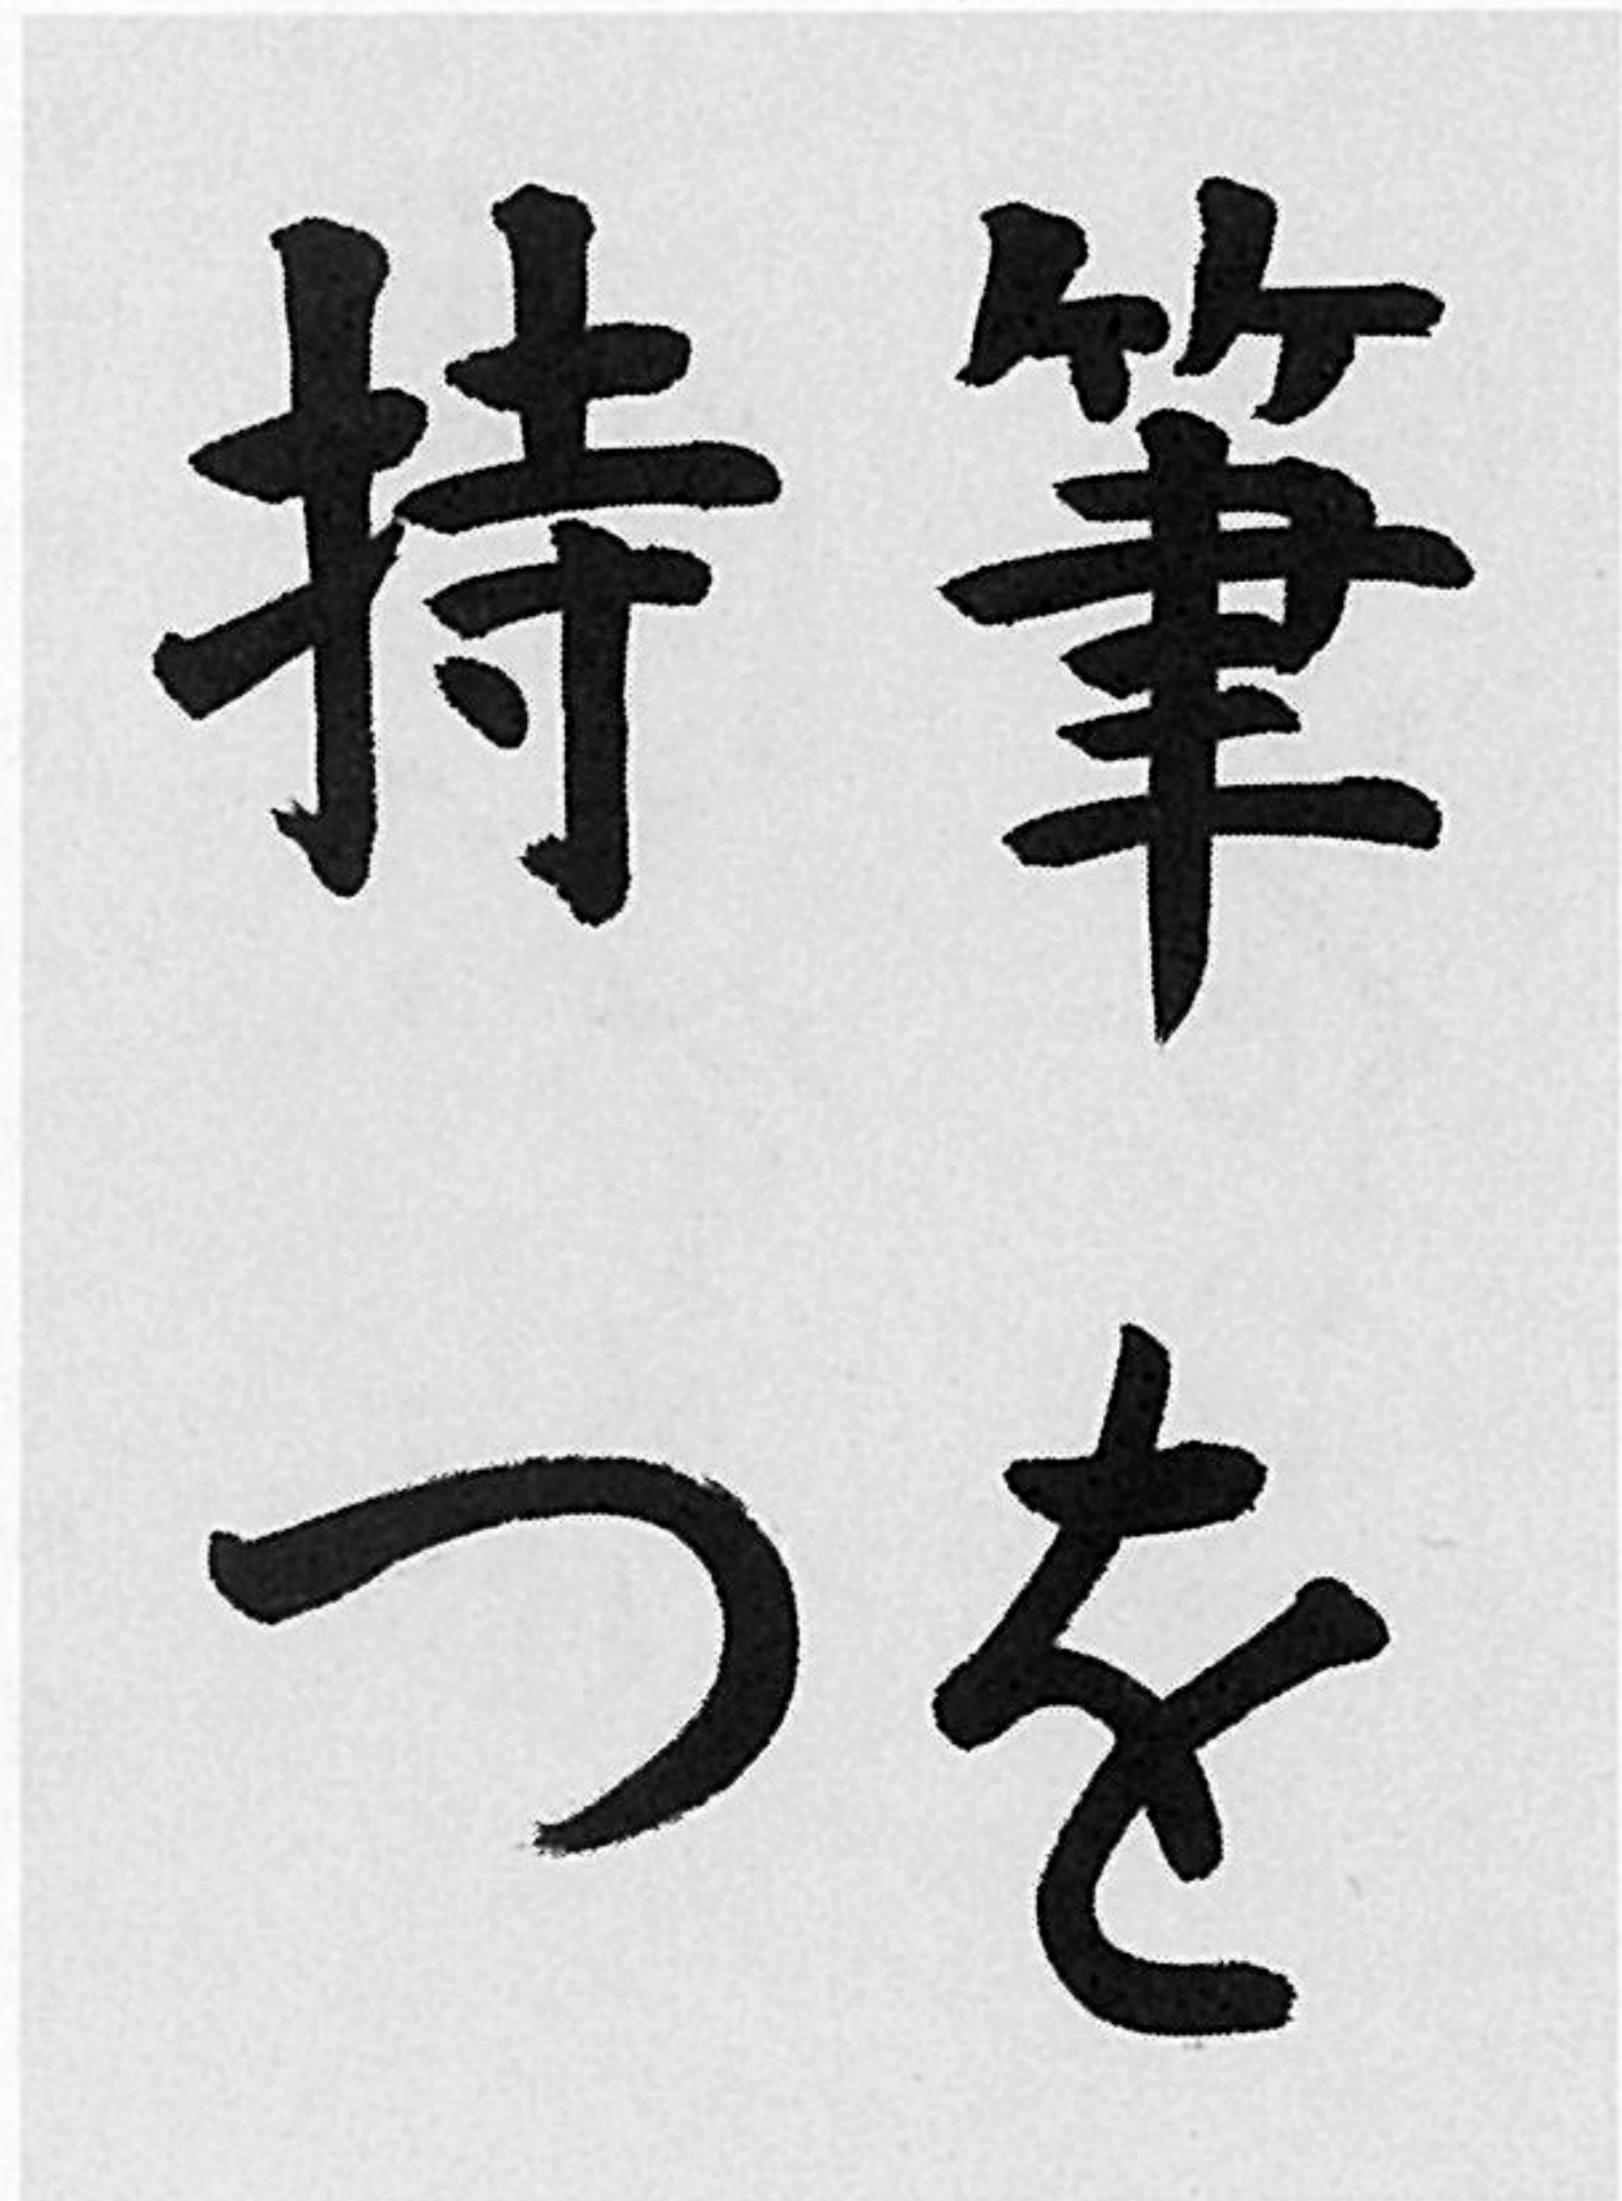 筆を
持つ